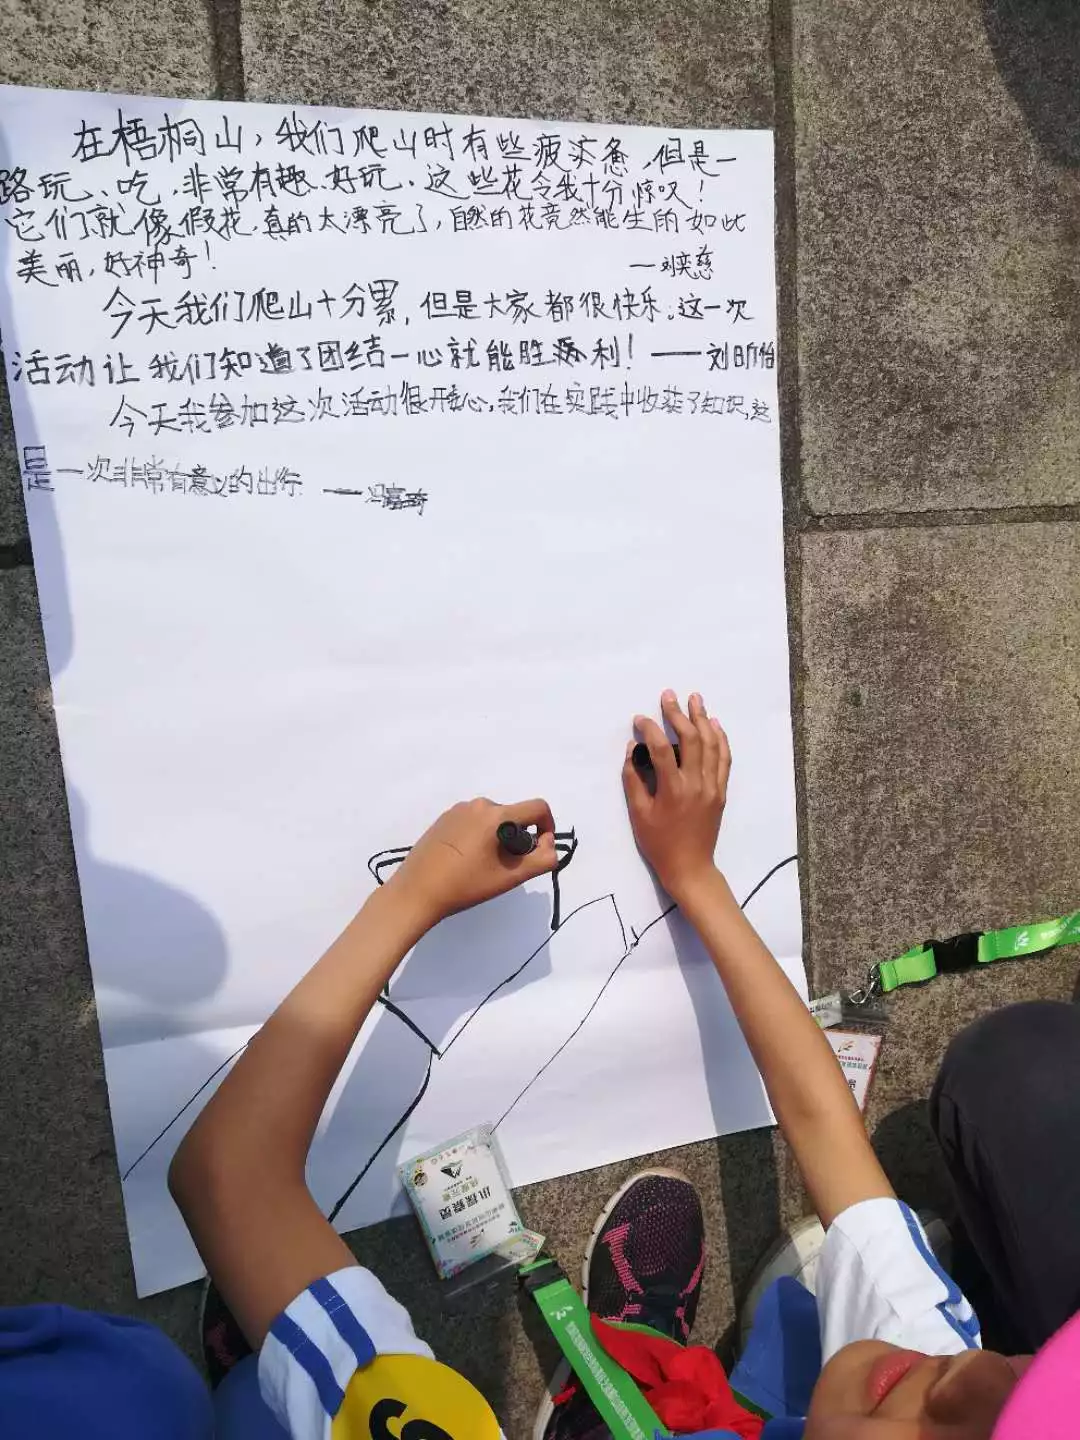 在梧桐山，我们爬山时有些疲惫，但是一
路玩、吃，非常有趣、好玩。这些花令我十分惊叹！
它们就像假花，真的太漂亮了，自然的花竟然能生的如此
美丽，好神奇！
——刘奕慈
今天我们爬山十分累，但是大家都很快乐。这一次
活动让我们知道了团结一心就能胜利！——刘昕怡
今天我参加这次活动很开心，我们在实践中收获了知识，这
是一次非常有意义的出行。——冯嘉琦
小探索员